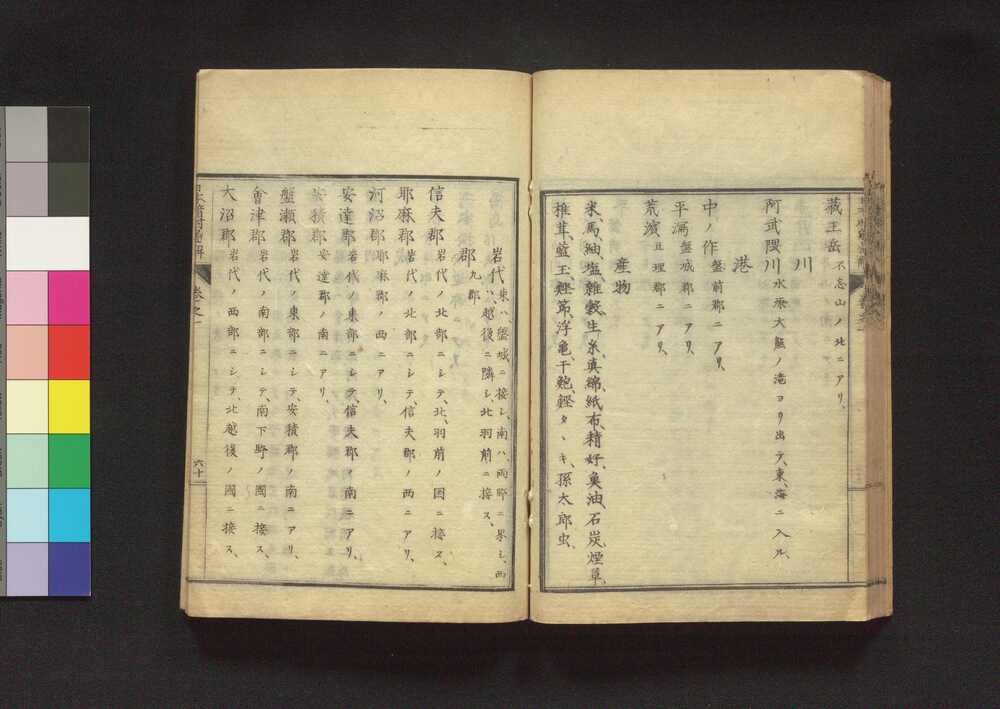 蔵王岳不忘山ノ北ニアリ、
川
阿武隈川水源大熊ノ滝ヨリ出テ、東海ニ入ル、
港
中ノ作磐前郡ニアリ、
平潟盤城郡ニアリ、
荒濱亘理郡ニアリ、
産物
米、馬、紬、塩、雑穀、生糸、真綿、紙布、精好、魚油、石炭、煙草、
椎茸、藍玉、鰹節、浮亀、干鮑、鰹タヽキ、孫太郎虫、
岩代東ハ、磐城ニ接シ、南ハ、両野ニ界シ、西
ハ、越後ニ隣シ、北羽前ニ接ス、
郡九郡
信夫郡岩代ノ北部ニシテ、北、羽前ノ国ニ接ス、
耶麻郡岩代ノ北部ニシテ、信夫郡ノ西ニアリ、
河沼郡耶麻郡ノ西ニアリ、
安達郡岩代ノ東部ニシテ、信夫郡ノ南ニアリ、
安積郡安達郡ノ南ニアリ、
盤瀬郡岩代ノ東部ニシテ、安積郡ノ南ニアリ、
會津郡岩代ノ南部ニシテ、南下野ノ國ニ接ス、
大沼郡岩代ノ西部ニシテ、北越後ノ國ニ接ス、
巻之一
六十